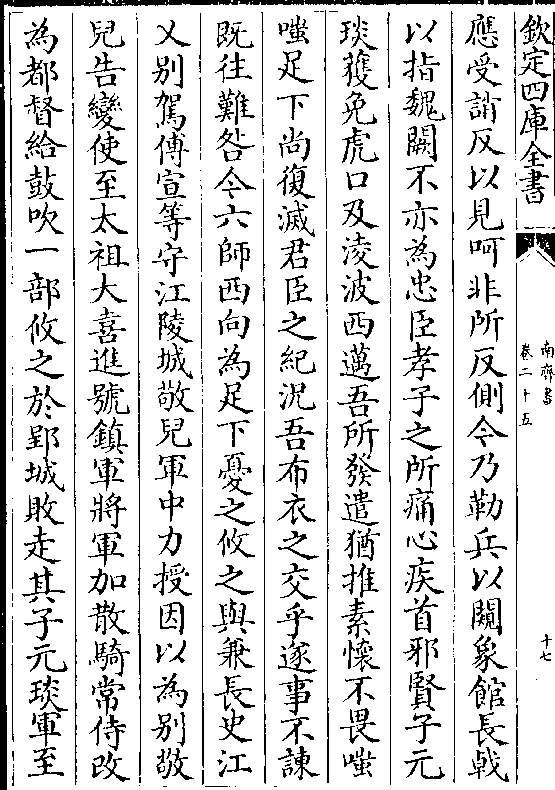 欽定四庫全書
南齊書
卷二十五
十七
應受誚反以見呵非所反側今乃勒兵以闚象館長戟
以指魏闕不亦為忠臣孝子之所痛心疾首邪賢子元
琰獲免虎口及淩波西邁吾所發遣猶推素懷不畏嗤
嗤足下尚復滅君臣之紀況吾布衣之交乎遂事不諫
既往難咎今六師西向為足下憂之攸之與兼長史江
乂别駕傅宣等守江陵城敬兒軍中力授因以為别敬
兒告變使至太祖大喜進號鎮軍將軍加散騎常侍改
為都督給鼓吹一部攸之於郢城敗走其子元琰軍至